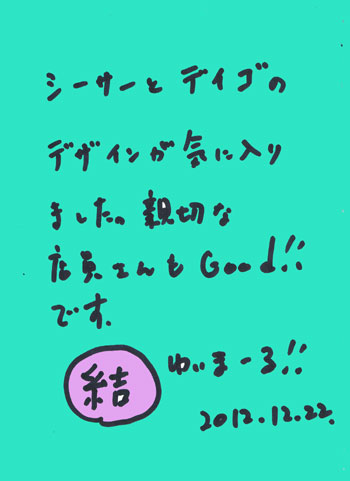 シーサーと デイゴの
デザインが 気に入り
ました。親切な
店員さんも Good!!
です.
結 ゆいまーる!!
2012.12.22.